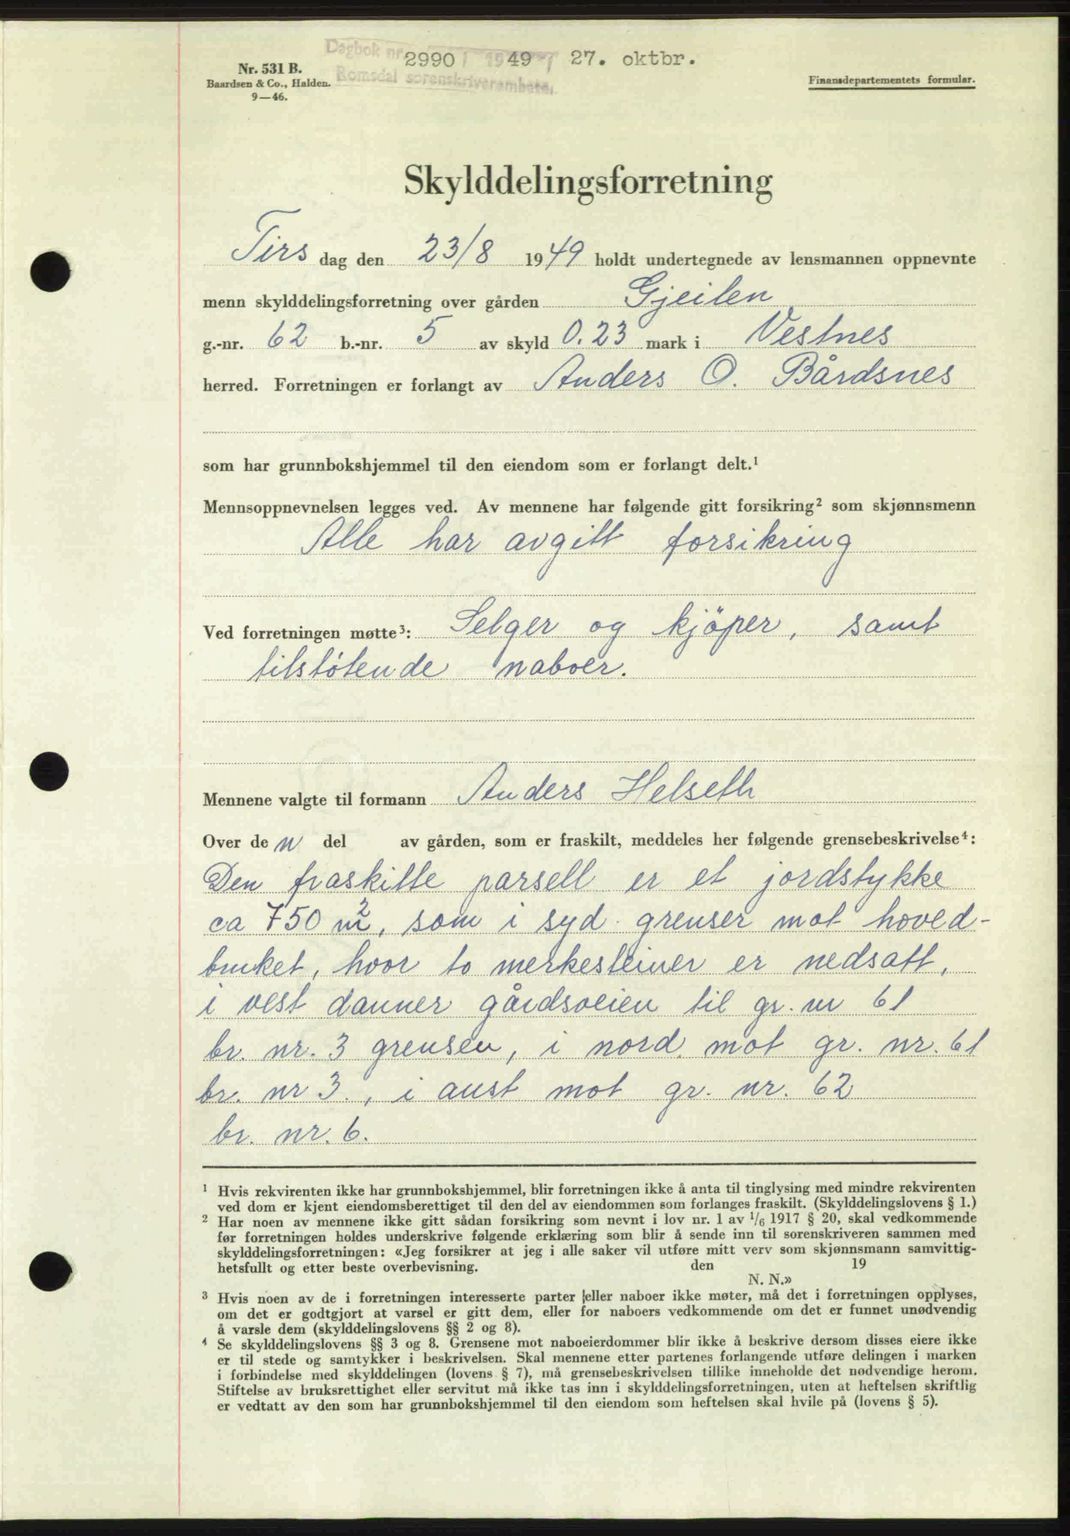 Dagbok nr. 2990 / 1949 27. oktbr.
Romsdal sorenskriverembete
Nr. 531 B.
Baardsen & Co., Halden.
9—46.
Finansdepartementets formular.
Skylddelingsforretning
Tirs dag den 23/8 1949 holdt undertegnede av lensmannen oppnevnte
menn skylddelingsforretning over gården Gjeilen
g.-nr. 62 b.-nr. 5 av skyld 0.23 mark i Vestnes
herred. Forretningen er forlangt av Anders O. Bårdsnes
som har grunnbokshjemmel til den eiendom som er forlangt delt.¹
Mennsoppnevnelsen legges ved. Av mennene har følgende gitt forsikring² som skjønnsmenn
Alle har avgitt forsikring
Ved forretningen møtte³: Selger og kjöper, samt
tilstøtende naboer.
Mennene valgte til formann Anders Helseth
Over de n del av gården, som er fraskilt, meddeles her følgende grensebeskrivelse⁴:
Den fraskilte parsell er et jordstykke
ca 750 m², som i syd grenser mot hoved-
bruket, hvor to merkesteiner er nedsatt,
i vest danner gårdsveien til gr. nr 61
br. nr. 3 grensen, i nord mot gr. nr. 61
br. nr 3., i aust mot gr. nr. 62
br. nr. 6.
¹ Hvis rekvirenten ikke har grunnbokshjemmel, blir forretningen ikke å anta til tinglysing med mindre rekvirenten
ved dom er kjent eiendomsberettiget til den del av eiendommen som forlanges fraskilt. (Skylddelingslovens § 1.)
² Har noen av mennene ikke gitt sådan forsikring som nevnt i lov nr. 1 av 1/6 1917 § 20, skal vedkommende
før forretningen holdes underskrive følgende erklæring som blir å sende inn til sorenskriveren sammen med
skylddelingsforretningen: «Jeg forsikrer at jeg i alle saker vil utføre mitt verv som skjønnsmann samvittig-
hetsfullt og etter beste overbevisning. den 19
N. N.»
³ Hvis noen av de i forretningen interesserte parter eller naboer ikke møter, må det i forretningen opplyses,
om det er godtgjort at varsel er gitt dem, eller for naboers vedkommende om det er funnet unødvendig
å varsle dem (skylddelingslovens §§ 2 og 8).
⁴ Se skylddelingslovens §§ 3 og 8. Grensene mot naboeierdommer blir ikke å beskrive dersom disses eiere ikke
er til stede og samtykker i beskrivelsen. Skal mennene etter partenes forlangende utføre delingen i marken
i forbindelse med skylddelingen (lovens § 7), må grensebeskrivelsen tillike inneholde det nødvendige herom.
Stiftelse av bruksrettighet eller servitut må ikke tas inn i skylddelingsforretningen, uten at heftelsen skriftlig
er vedtatt av den som har grunnbokshjemmel til den eiendom som heftelsen skal hvile på (lovens § 5).